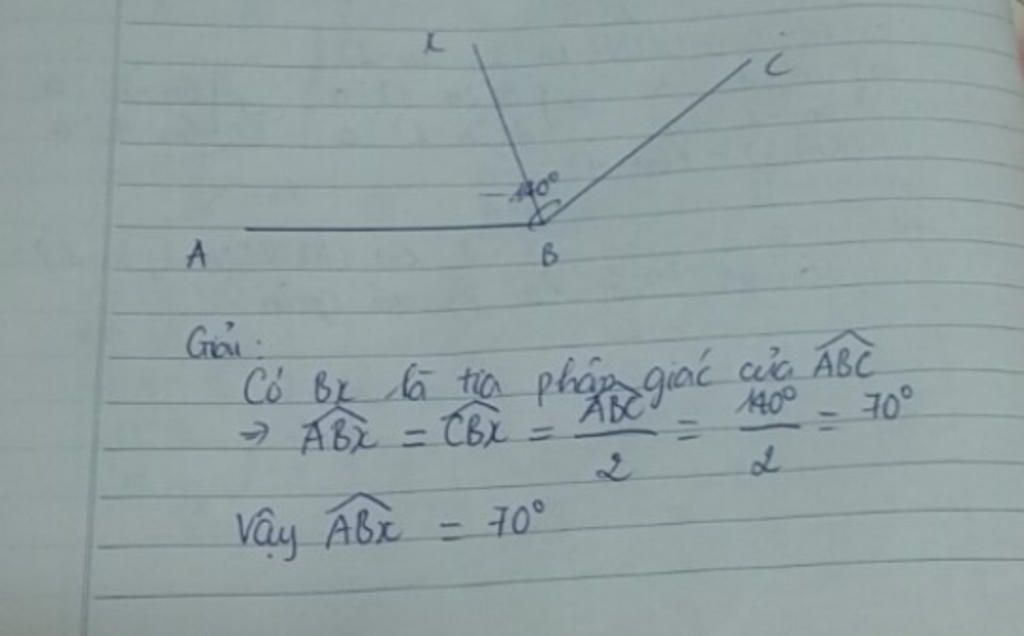 x
C
140°
A
B
Giải:
Có Bx là tia phân giác của ABC
=> ABx = CBx = ABC/2 = 140°/2 = 70°
Vậy ABx = 70°